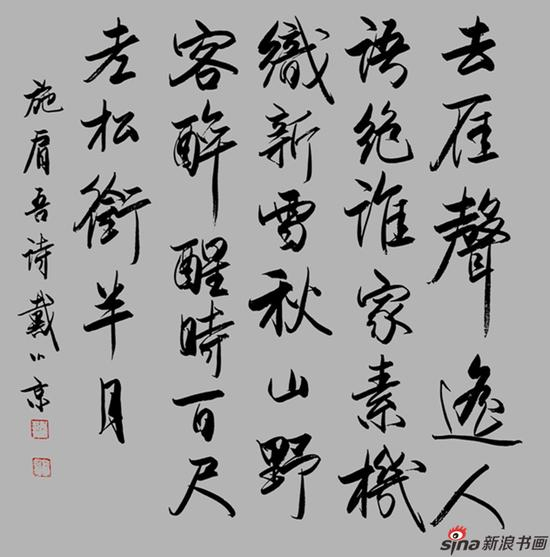 去雁聲遙人
語絶誰家素機
織新雪秋山野
客醉醒時百尺
老松銜半月
施肩吾诗戴小京
sina新浪书画